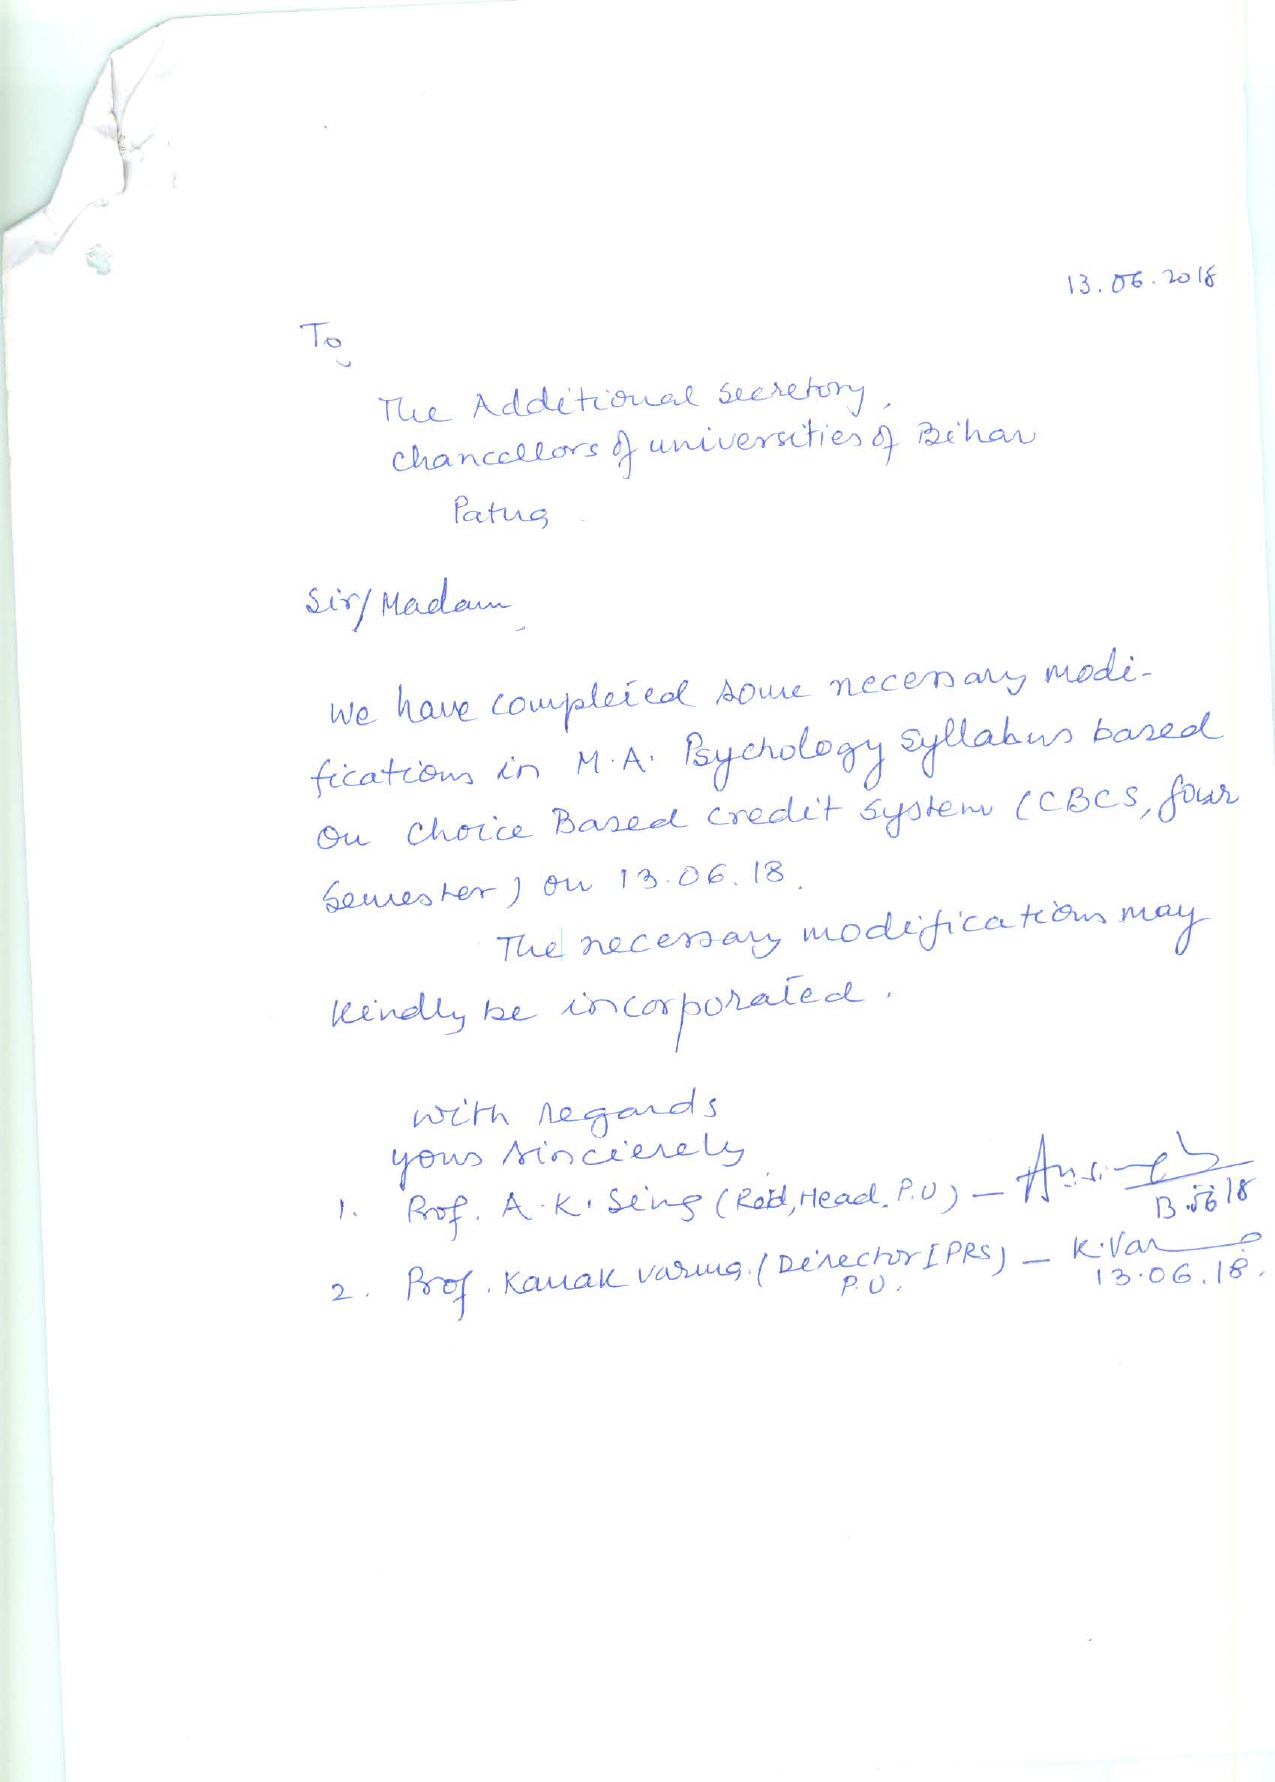 13.06.2018
To,
The Additional Secretary,
Chancellors of universities of Bihar
Patna
Sir/Madam,
We have completed some necessary modi-
fications in M.A. Psychology Syllabus based
on Choice Based Credit System (CBCS, four
Semester) on 13.06.18.
The necessary modifications may
kindly be incorporated.
with regards
yours sincerely
1. Prof. A.K. Sing (Retd, Head. P.U) –
13.06.18
2. Prof. Kanak Varma. (Director IPRS) – K. Var
P.U. 13.06.18.